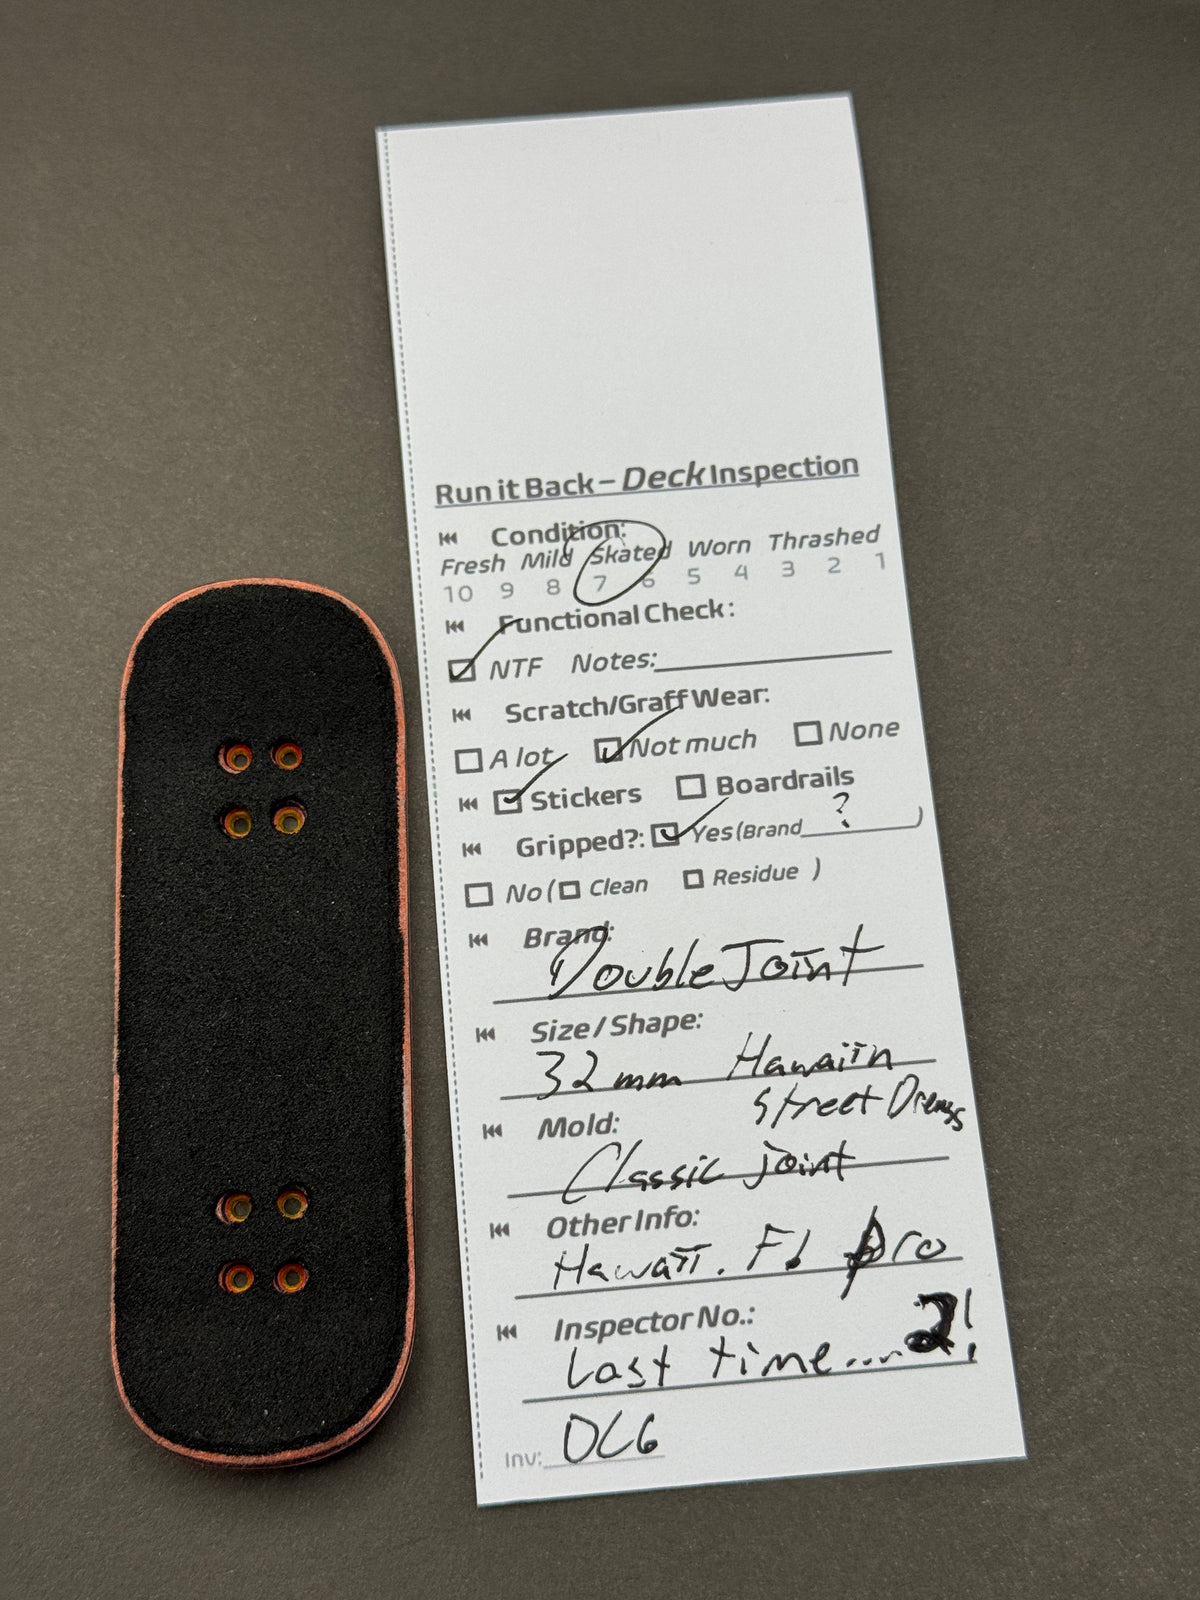 Run it Back – Deck Inspection
Condition:
Fresh Mild Skated Worn Thrashed
10 9 8 7 6 5 4 3 2 1
Functional Check:
NTF Notes:
Scratch/Graff Wear:
A lot Not much None
Stickers Boardrails
Gripped?: Yes (Brand ? )
No ( Clean Residue )
Brand:
Double Joint
Size / Shape:
32mm Hawaiin
Street
Mold:
Classic joint
Other Info:
Hawaii. Fb pro
Inspector No.:
Last time.... 2!
Inv: DC6